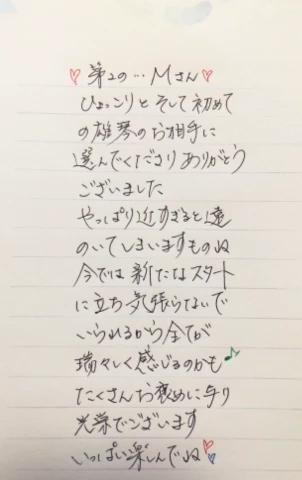 ♡第2の…Mさん♡
ひょっこりと そして初めて
の雄琴のお相手に
選んでくださりありがとう
ございました
やっぱり近すぎると遠
のいてしまいますものね
今では新たなスタート
に立ち気張らないで
いられるから全てが
瑞々しく感じるのかも
たくさんお褒めに与り
光栄でございます
いっぱい楽しんでね♡